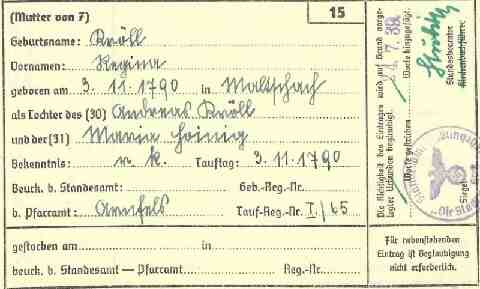 (Mutter von 7) 15
Geburtsname: Kröll
Vornamen: Regina
geboren am 3. 11. 1790 in Maltschach
als Tochter des (30) Andreas Kröll
und der (31) Maria Hoinig
Bekenntnis: r. k. Tauftag: 3. 11. 1790
Beurk. b. Standesamt: Geb.-Reg.-Nr.
b. Pfarramt: Arnfels Tauf-Reg.-Nr. I/65
gestorben am in
beurk. b. Standesamt — Pfarramt Reg.-Nr.
Die Richtigkeit des Eintrages wird auf Grund vorge-
legter Urkunden beglaubigt.
7. 39
Worte hinzugefügt.
Worte gestrichen
Standesbeamte
Kirchenbuchführer
Siegel
Für nebenstehenden
Eintrag ist Beglaubigung
nicht erforderlich.